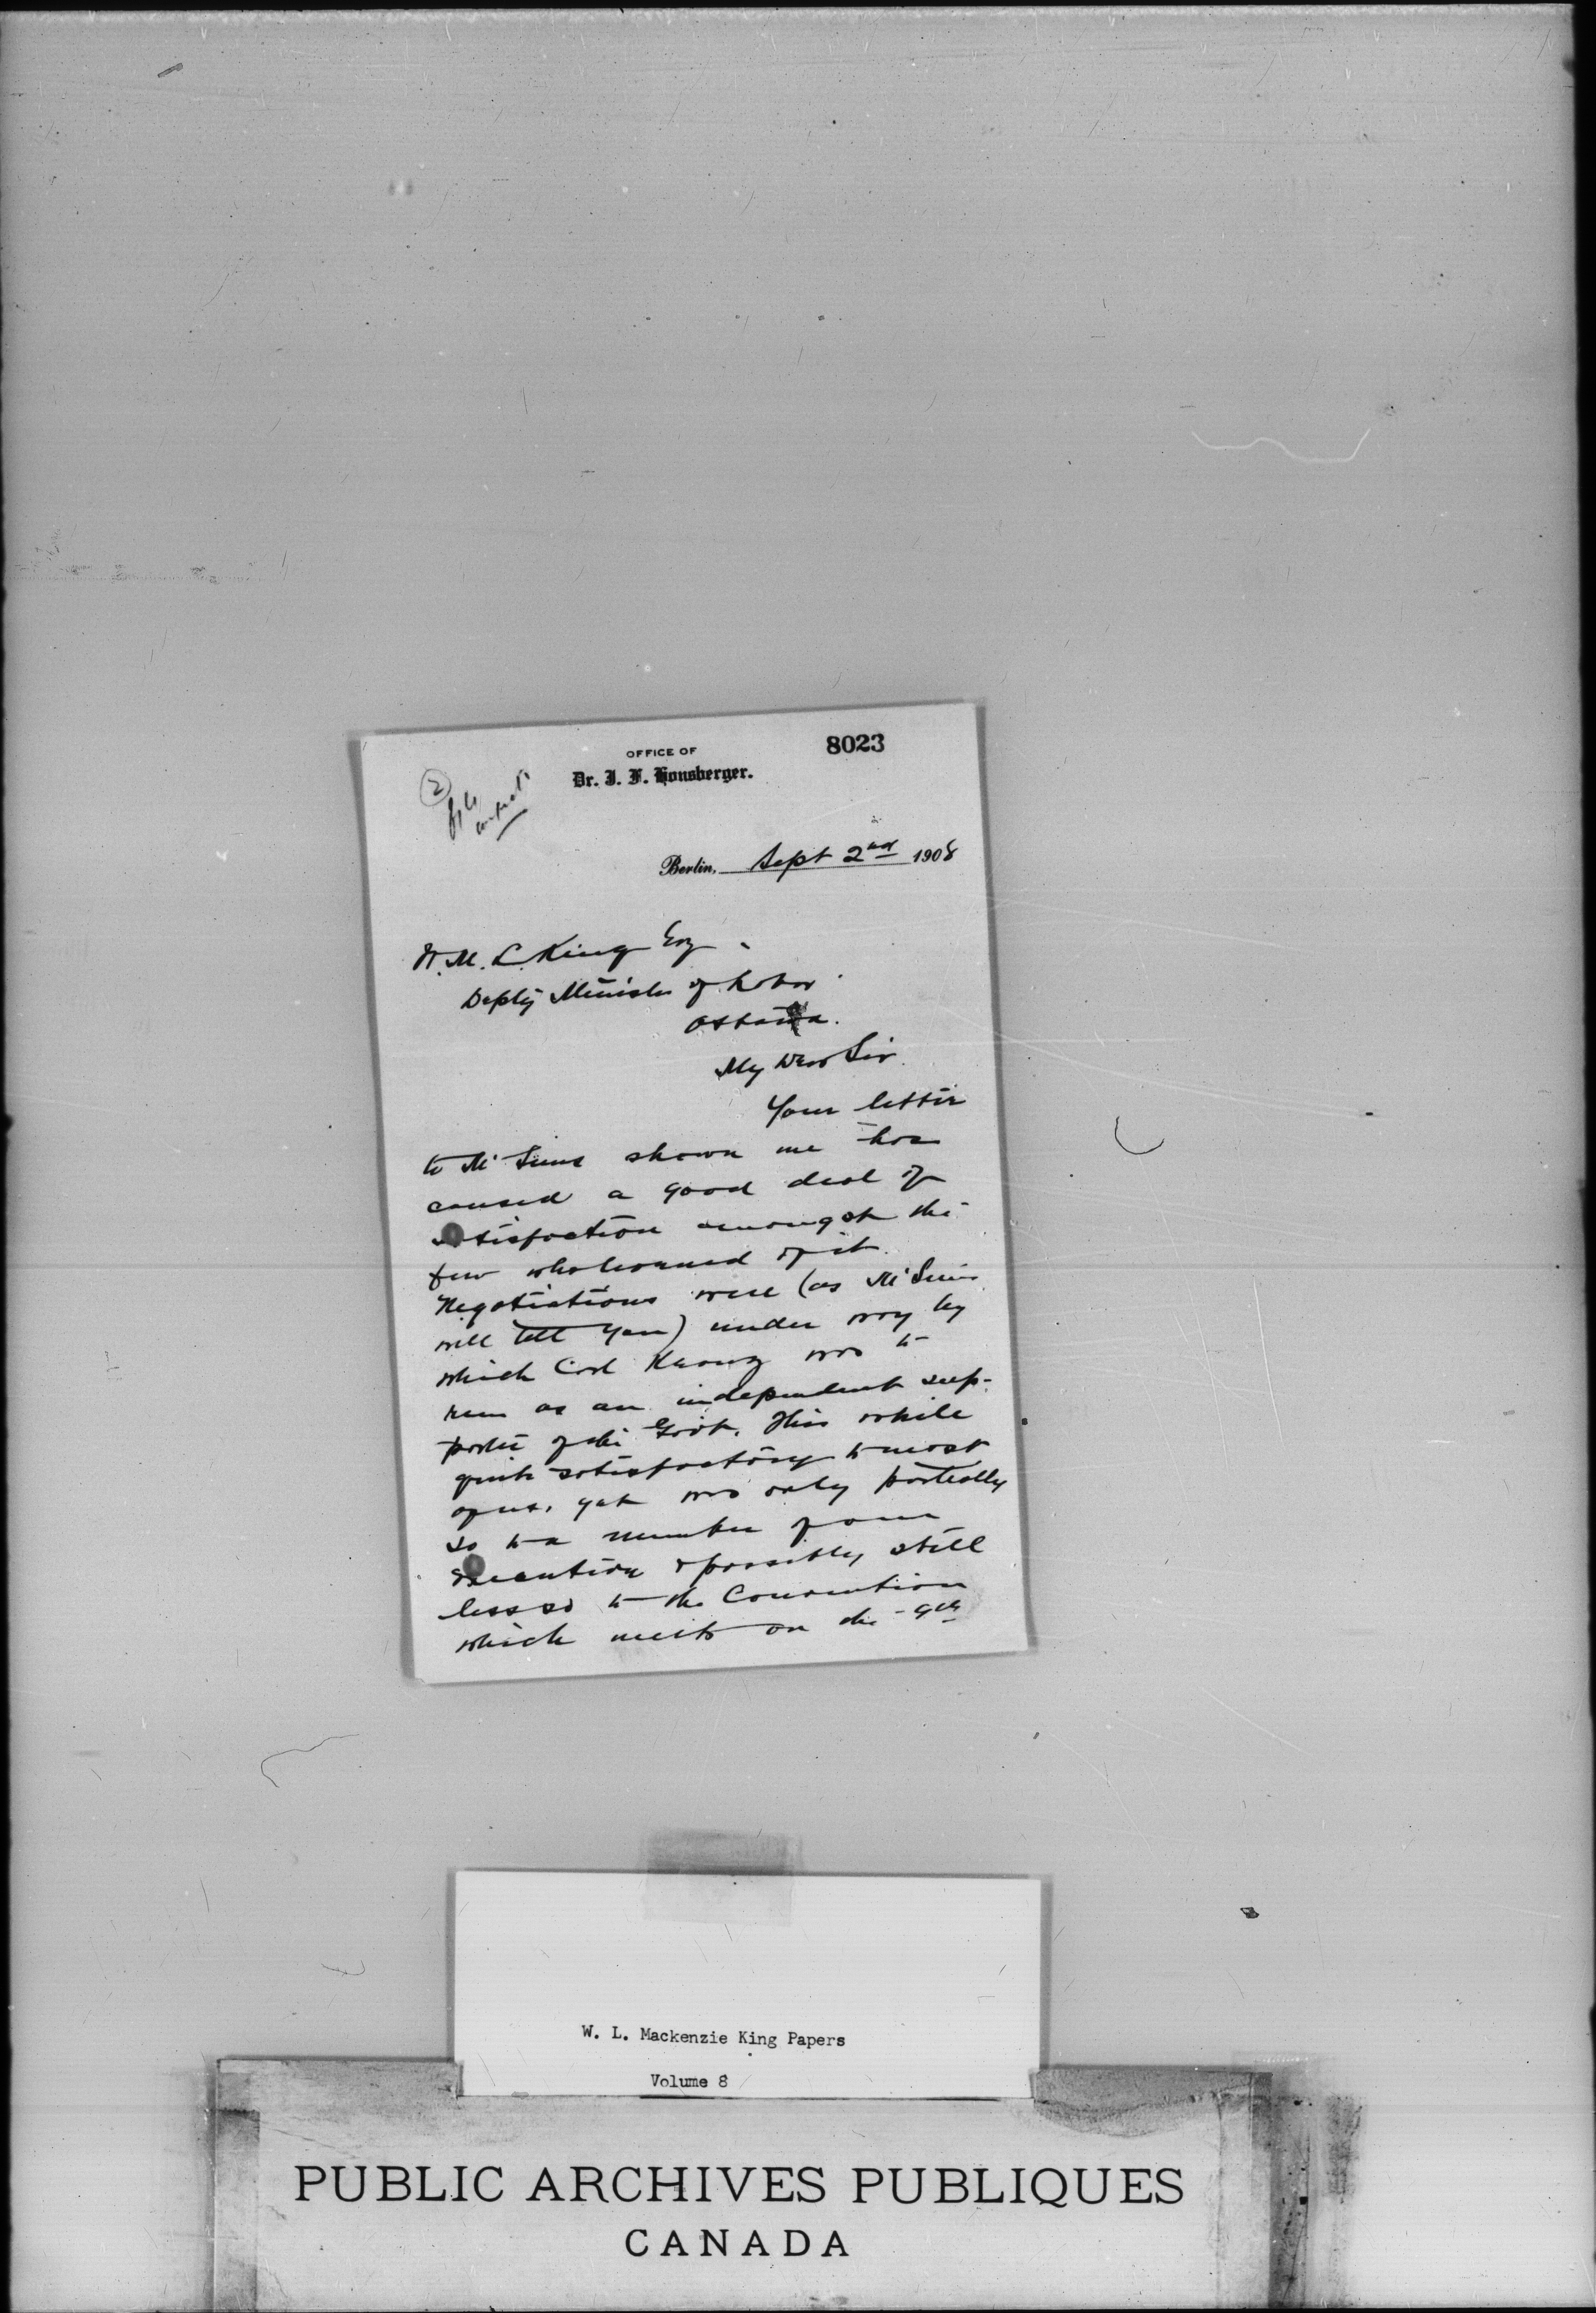 8023
OFFICE OF
Dr. J. F. Honsberger.
2
file
Berlin, Sept 2nd 1908
W. M. L. King Esq.
Depty Minister of Labor
Ottawa.
My Dear Sir
Your letter
to Mr Sims shown me has
caused a good deal of
satisfaction amongst the
few who learned of it.
Negotiations were (as Mr Sims
will tell you) under way by
which Carl Kranz was to
run as an independent sup-
porter of the Govt. This while
quite satisfactory to most
of us, yet was only partially
so to a number of our
executive & possibly still
less so to the Convention
which meets on the 9th
W. L. Mackenzie King Papers
Volume 8
PUBLIC ARCHIVES PUBLIQUES
CANADA